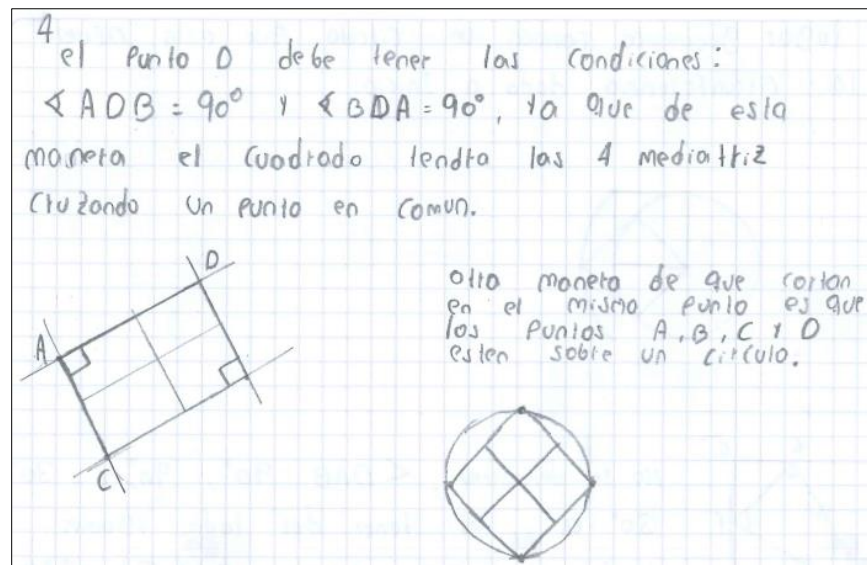 4
el punto D debe tener las condiciones:
∢ ADB = 90° y ∢ BDA = 90°, ya que de esta
manera el cuadrado tendra las 4 mediatriz
cruzando un punto en comun.
D
A
C
otra manera de que cortan
en el mismo punto es que
los puntos A, B, C y D
esten sobre un circulo.